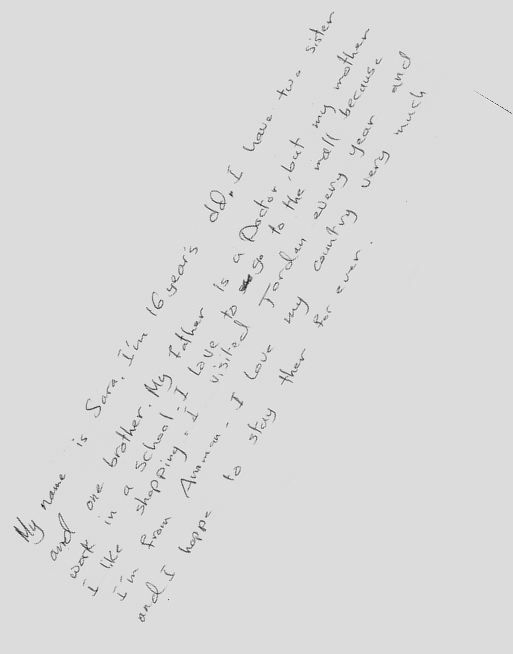 My name is Sara. I'm 16 year's old. I have two sister
and one brother. My father is a Doctor, but my mother
work in a school. I love to go to the mall because
I like shopping. I visited Jordan every year and
I'm from Amman. I love my country very much
and I hoppe to stay ther for ever.